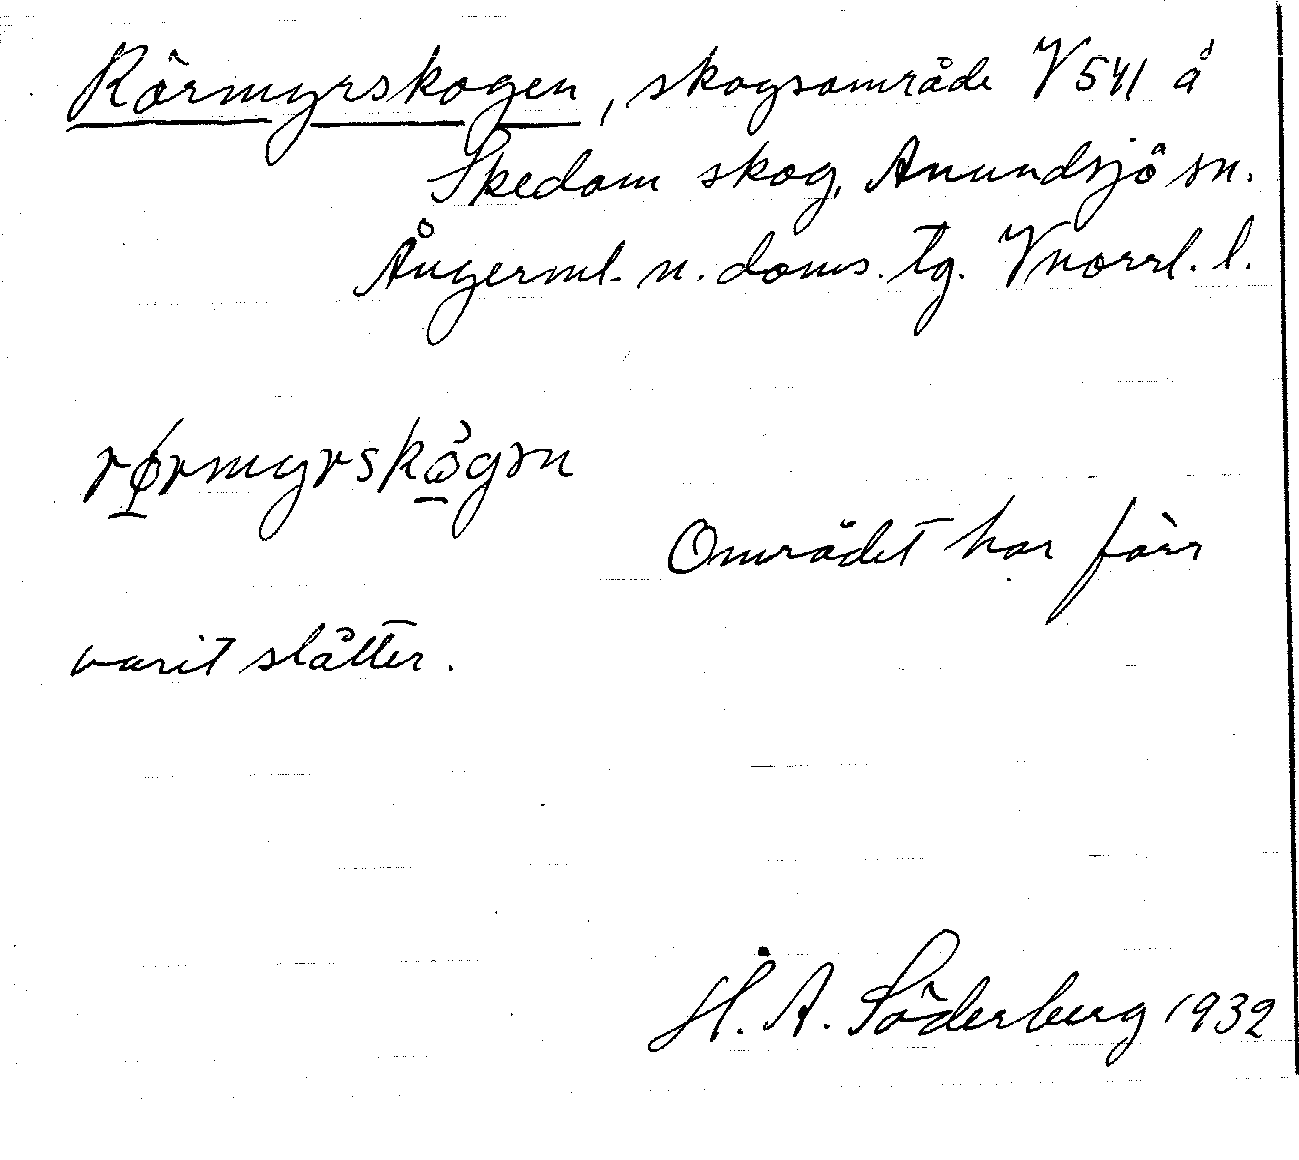 Rörmyrskogen, skogsområde V 541 å
Skedom skog, Anundsjö sn.
Ångerml. n. doms. tg. Vnorrl. l.
rørmyrskǫ̀gən
Området har förr
varit slåtter.
H. A. Söderberg 1932